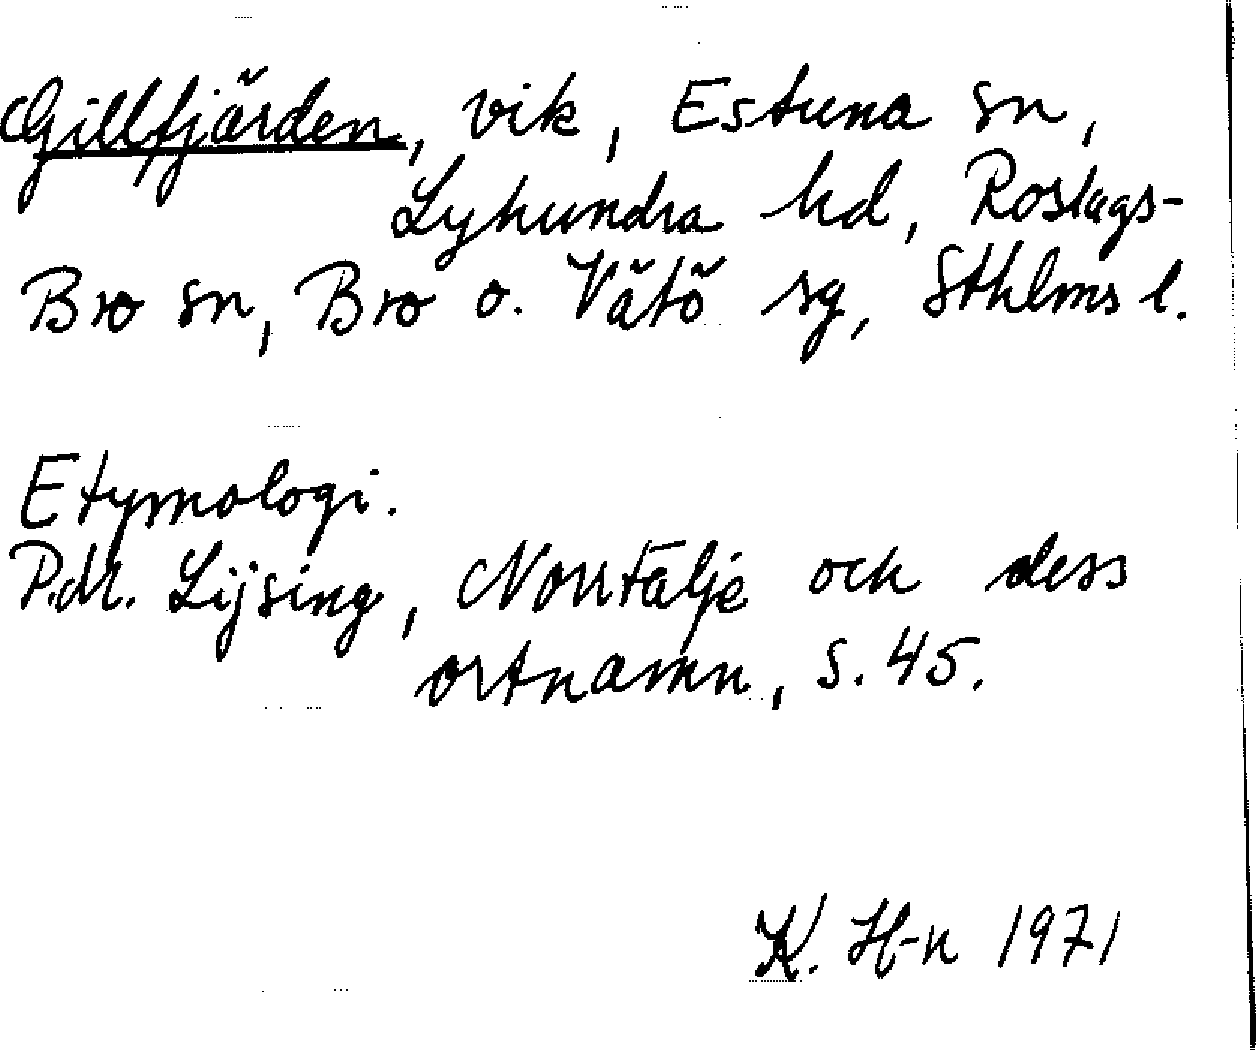 Gillfjärden, vik, Estuna sn,
Lyhundra hd, Roslags-
Bro sn, Bro o. Vätö sg, Sthlms l.
Etymologi.
P.M. Lijsing, Norrtälje och dess
ortnamn, s. 45.
K. H-n 1971